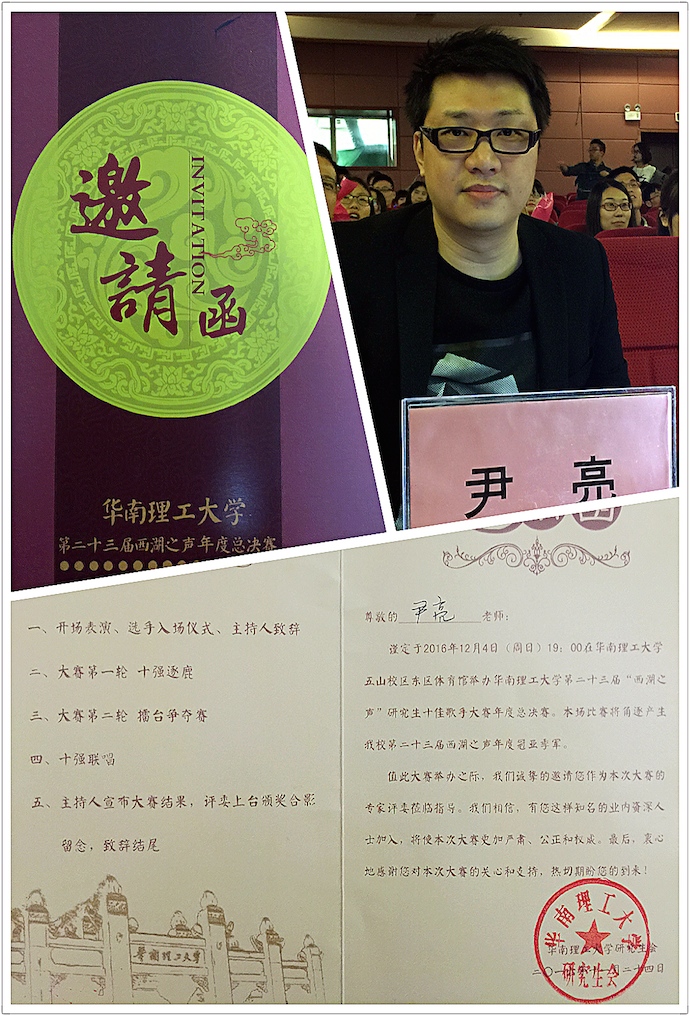 邀請函
INVITATION
华南理工大学
第二十三届西湖之声年度总决赛
尹 亮
一、开场表演、选手入场仪式、主持人致辞
二、大赛第一轮 十强逐鹿
三、大赛第二轮 擂台争夺赛
四、十强联唱
五、主持人宣布大赛结果，评委上台颁奖合影
留念，致辞结尾
華南理工大学
尊敬的 尹亮 老师：
谨定于2016年12月4日（周日）19：00在华南理工大学
五山校区东区体育馆举办华南理工大学第二十三届“西湖之
声”研究生十佳歌手大赛年度总决赛。本场比赛将角逐产生
我校第二十三届西湖之声年度冠亚季军。
值此大赛举办之际，我们诚挚的邀请您作为本次大赛的
专家评委莅临指导。我们相信，有您这样知名的业内资深人
士加入，将使本次大赛更加严肃、公正和权威。最后，衷心
地感谢您对本次大赛的关心和支持，热切期盼您的到来！
华南理工大学研究生会
二〇一六年十一月二十四日
华南理工大学
研究生会